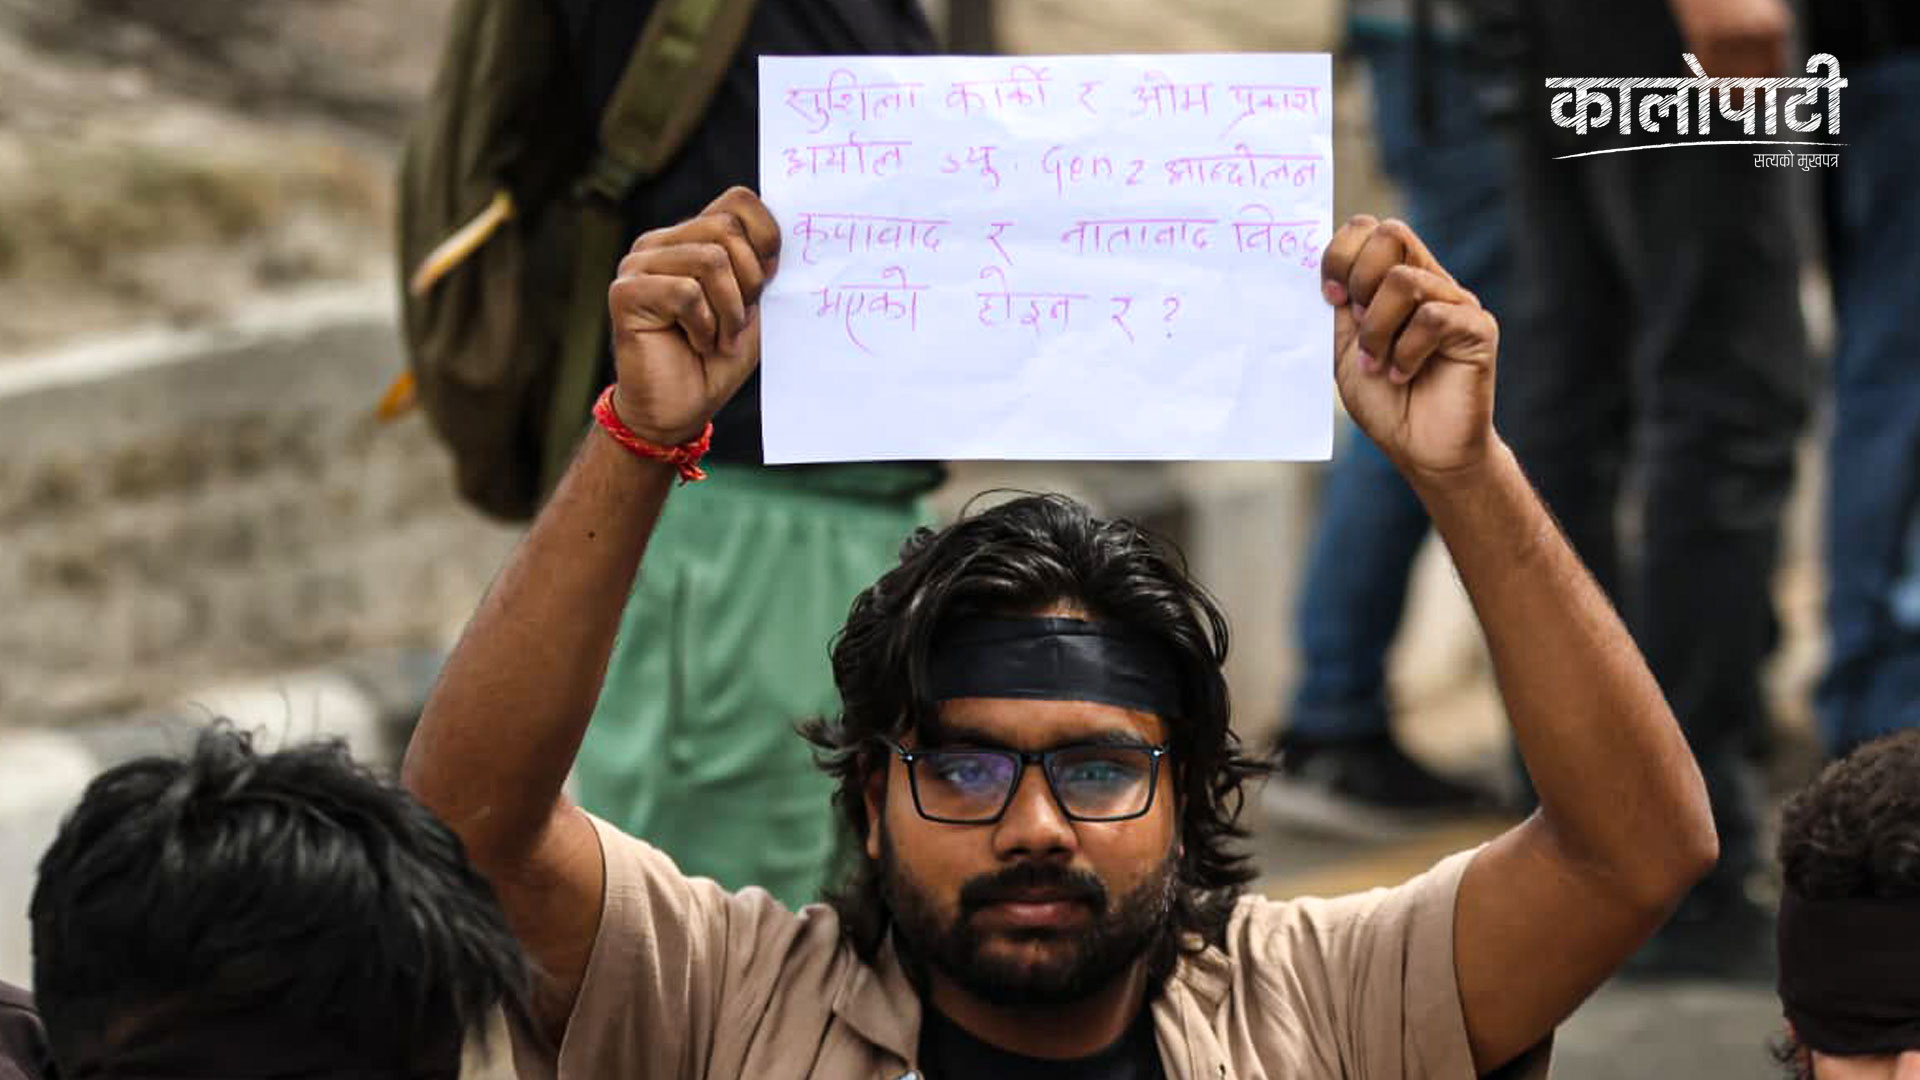 सुशिला कार्की र ओम प्रकाश
अर्याल ज्यु. Gen z आन्दोलन
कृपावाद र नातावाद विरुद्ध
भएको होइन र ?
कालोपाटी
सत्यको मुखपत्र